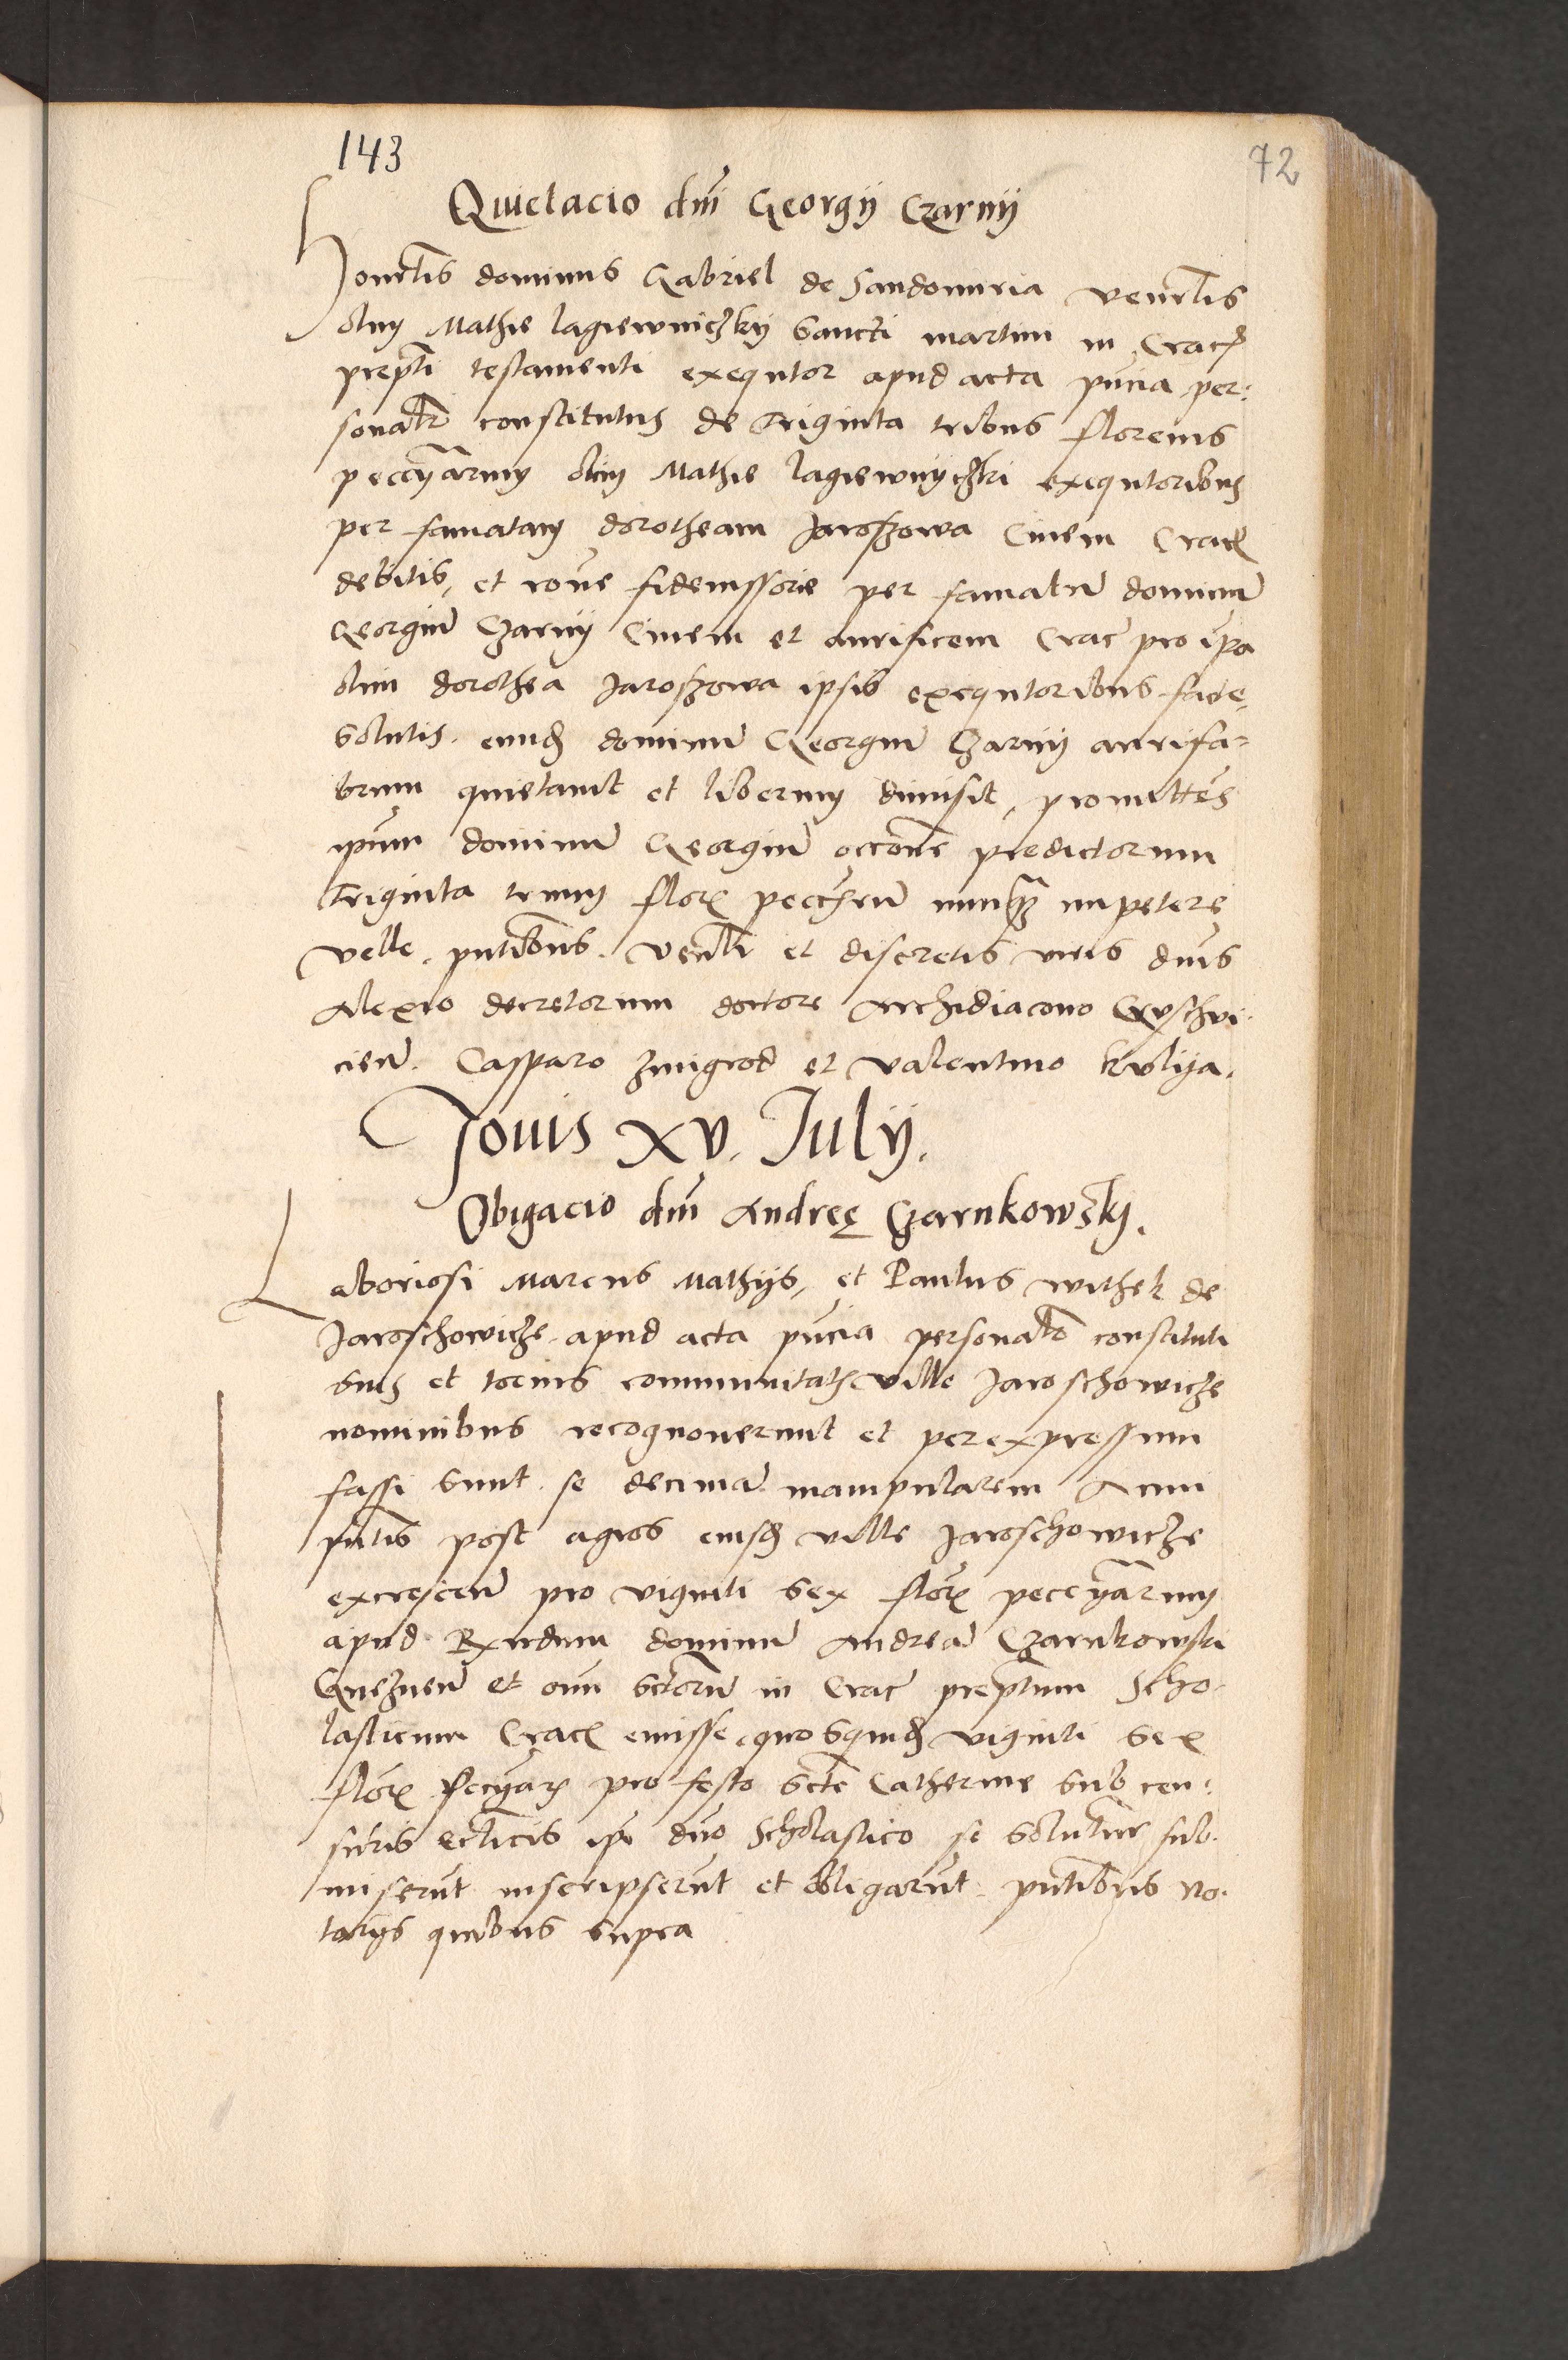 143
72
Quietacio dni Georgij Czarnij
Honorabilis dominus Gabriel de Sandomiria venerabilis
olim Mathie lagiewniczkij Sancti martini in Crac
prepti testamenti exequtor apud acta pncia per-
sonalr constitutus de triginta tribus florenis
peccyarum olim Mathie lagiewnyczki exequtoribus
per famatam dorotheam Jaroszowa Civem Crac
debitis, et rone fideiussorie per famatum dominum
Georgium Czarnij Civem et aurificem Crac pro ipa
olim dorothea Jaroszowa ipsis exequtoribus facte
Solutis. eundem dominum Georgium Czarnij aurifa-
brum quietavit et liberum dimisit, promittens
ipsum dominum Georgium occone predictorum
triginta trium flor peccyarum nunquam impetere
velle. pntibus. venbli et discretis viris dnis
Alexio decretorum doctore Archidiacono
cien. Casparo zmigrod et valentino kulija.
Jouis XV. Julij.
Obigacio dni Andreę Czarnkowskj.
Laboriosi Marcus Mathijs, et Paulus withek de
Jaroschowicze apud acta pncia personalr constituti
suis et tocius communitatis ville Jaroschowicze
nominibus recognoverunt et per expressum
fassi sunt. se decimam manipularem Anni
pntis post agros eiusdem ville Jaroschowicze
excrescen pro viginti sex flor peccyarum
apud Rxndum dominum Andream Czarnkowski
Gneznen et omn sctorum in Crac preptum Scho-
lasticum Crac emisse. quosquidem viginti sex
flor peccyar pro festo Scte Catherine sub cen-
suris ecclicis ipi dno Scholastico se soluturos sub-
miserunt inscripserunt et obligarunt. pntibus No-
tarijs quibus supra